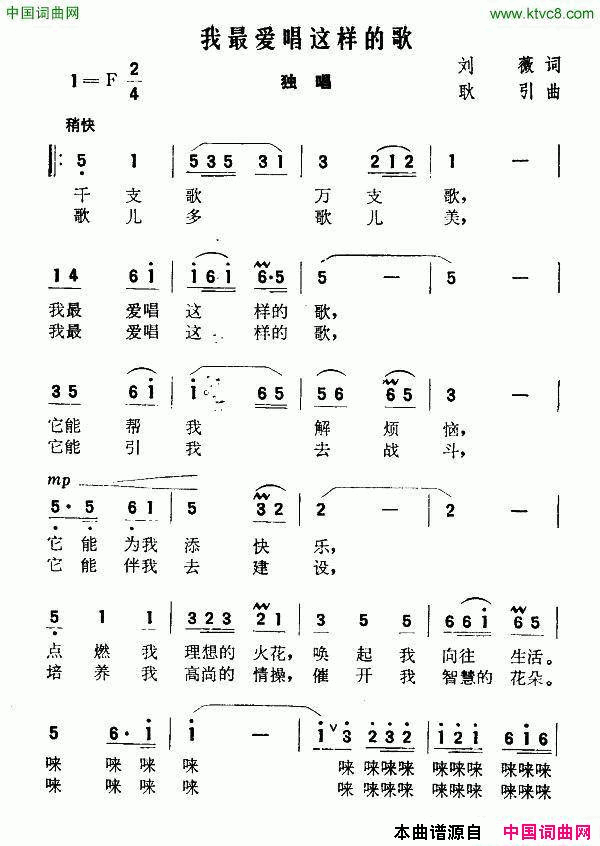 中国词曲网
www.ktvc8.com
我最爱唱这样的歌
1=F 2/4
独唱
刘薇词
耿引曲
稍快
5 1 535 31 3 212 1 —
千支歌 万支歌，
歌儿多 歌儿美，
14 61 161 6·5 5 — 5 —
我最爱唱这样的歌，
我最爱唱这样的歌，
35 61 1 65 56 65 3 —
它能帮我解烦恼，
它能引我去战斗，
mp
5·5 61 5 32 2 — 2 —
它能为我添快乐，
它能伴我去建设，
5 1 1 323 21 3 5 5 661 65
点燃我理想的火花，唤起我向往生活。
培养我高尚的情操，催开我智慧的花朵。
5 6·1 1 — 1 3 232 121 616
唻 唻唻 唻 唻 唻唻唻 唻唻唻 唻唻唻
唻 唻唻 唻 唻 唻唻唻 唻唻唻 唻唻唻
本曲谱源自 中国词曲网